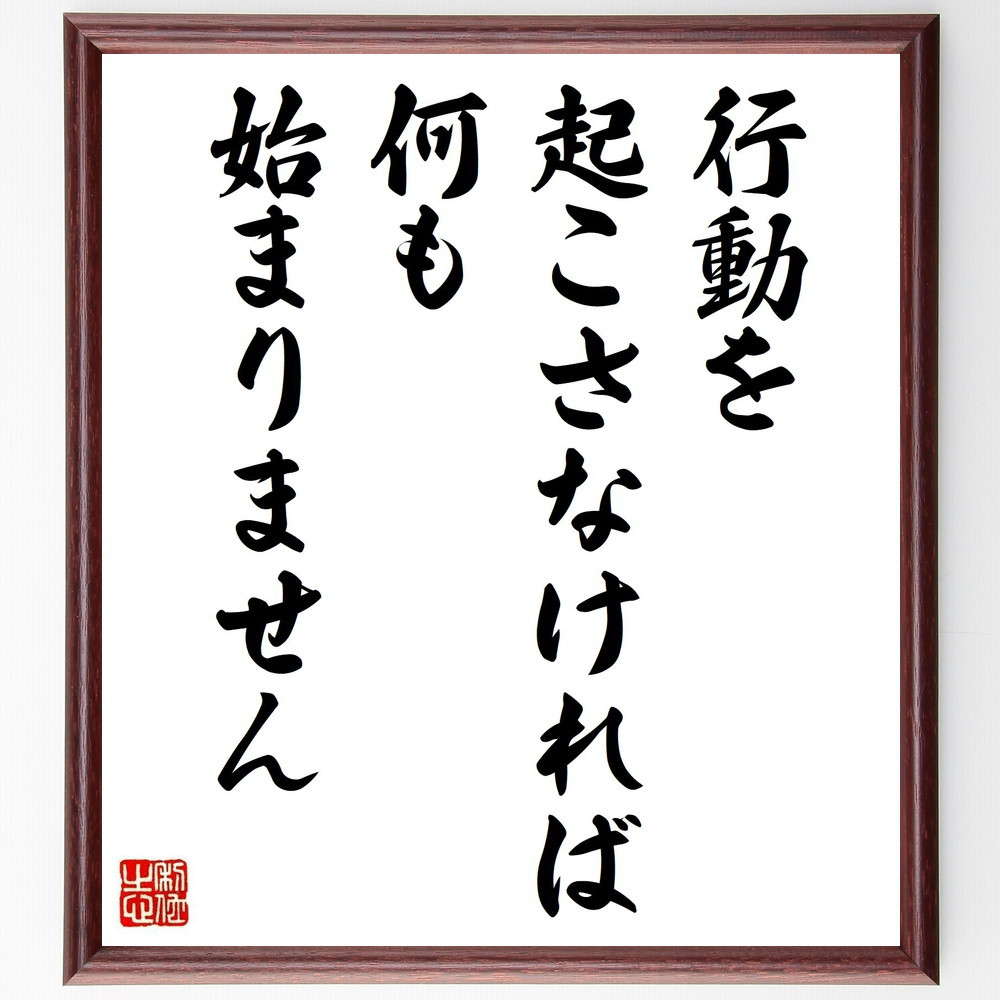 行動を
起こさなければ
何も
始まりません